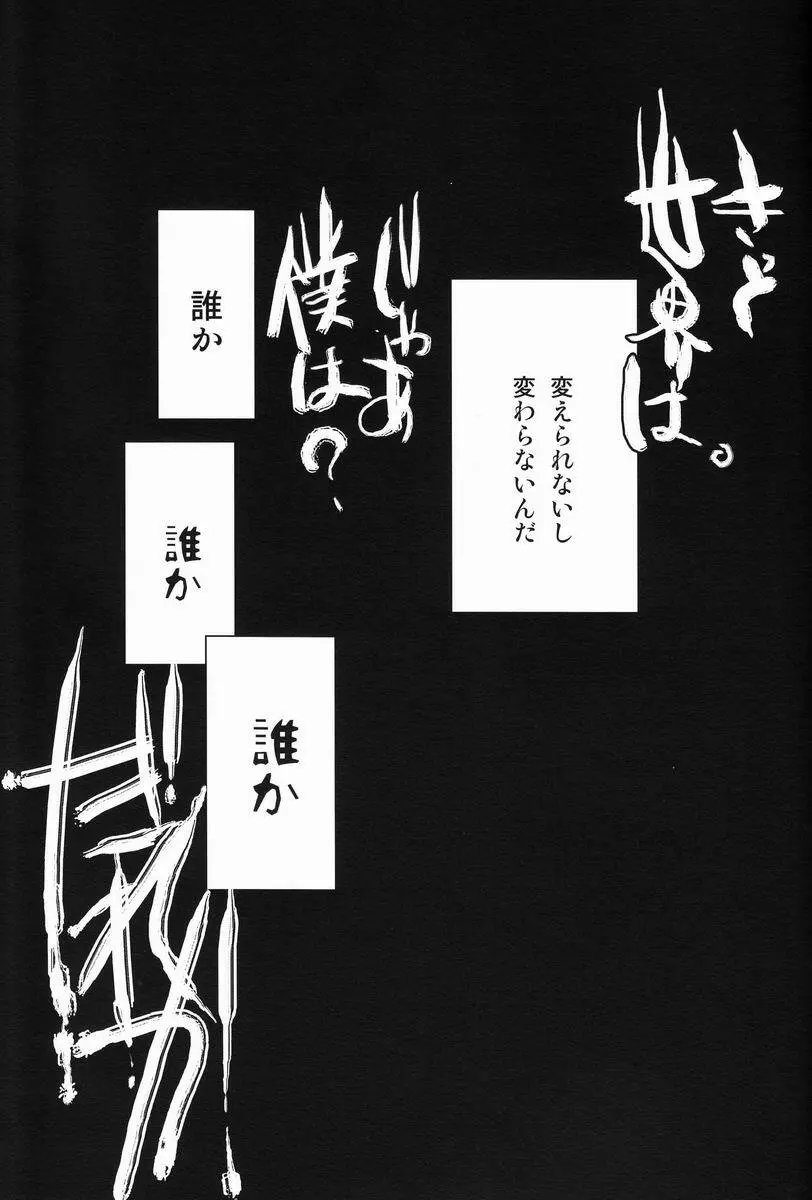 きっと
世界は。
変えられないし
変わらないんだ
じゃあ
僕は?
誰か
誰か
誰か
だれか